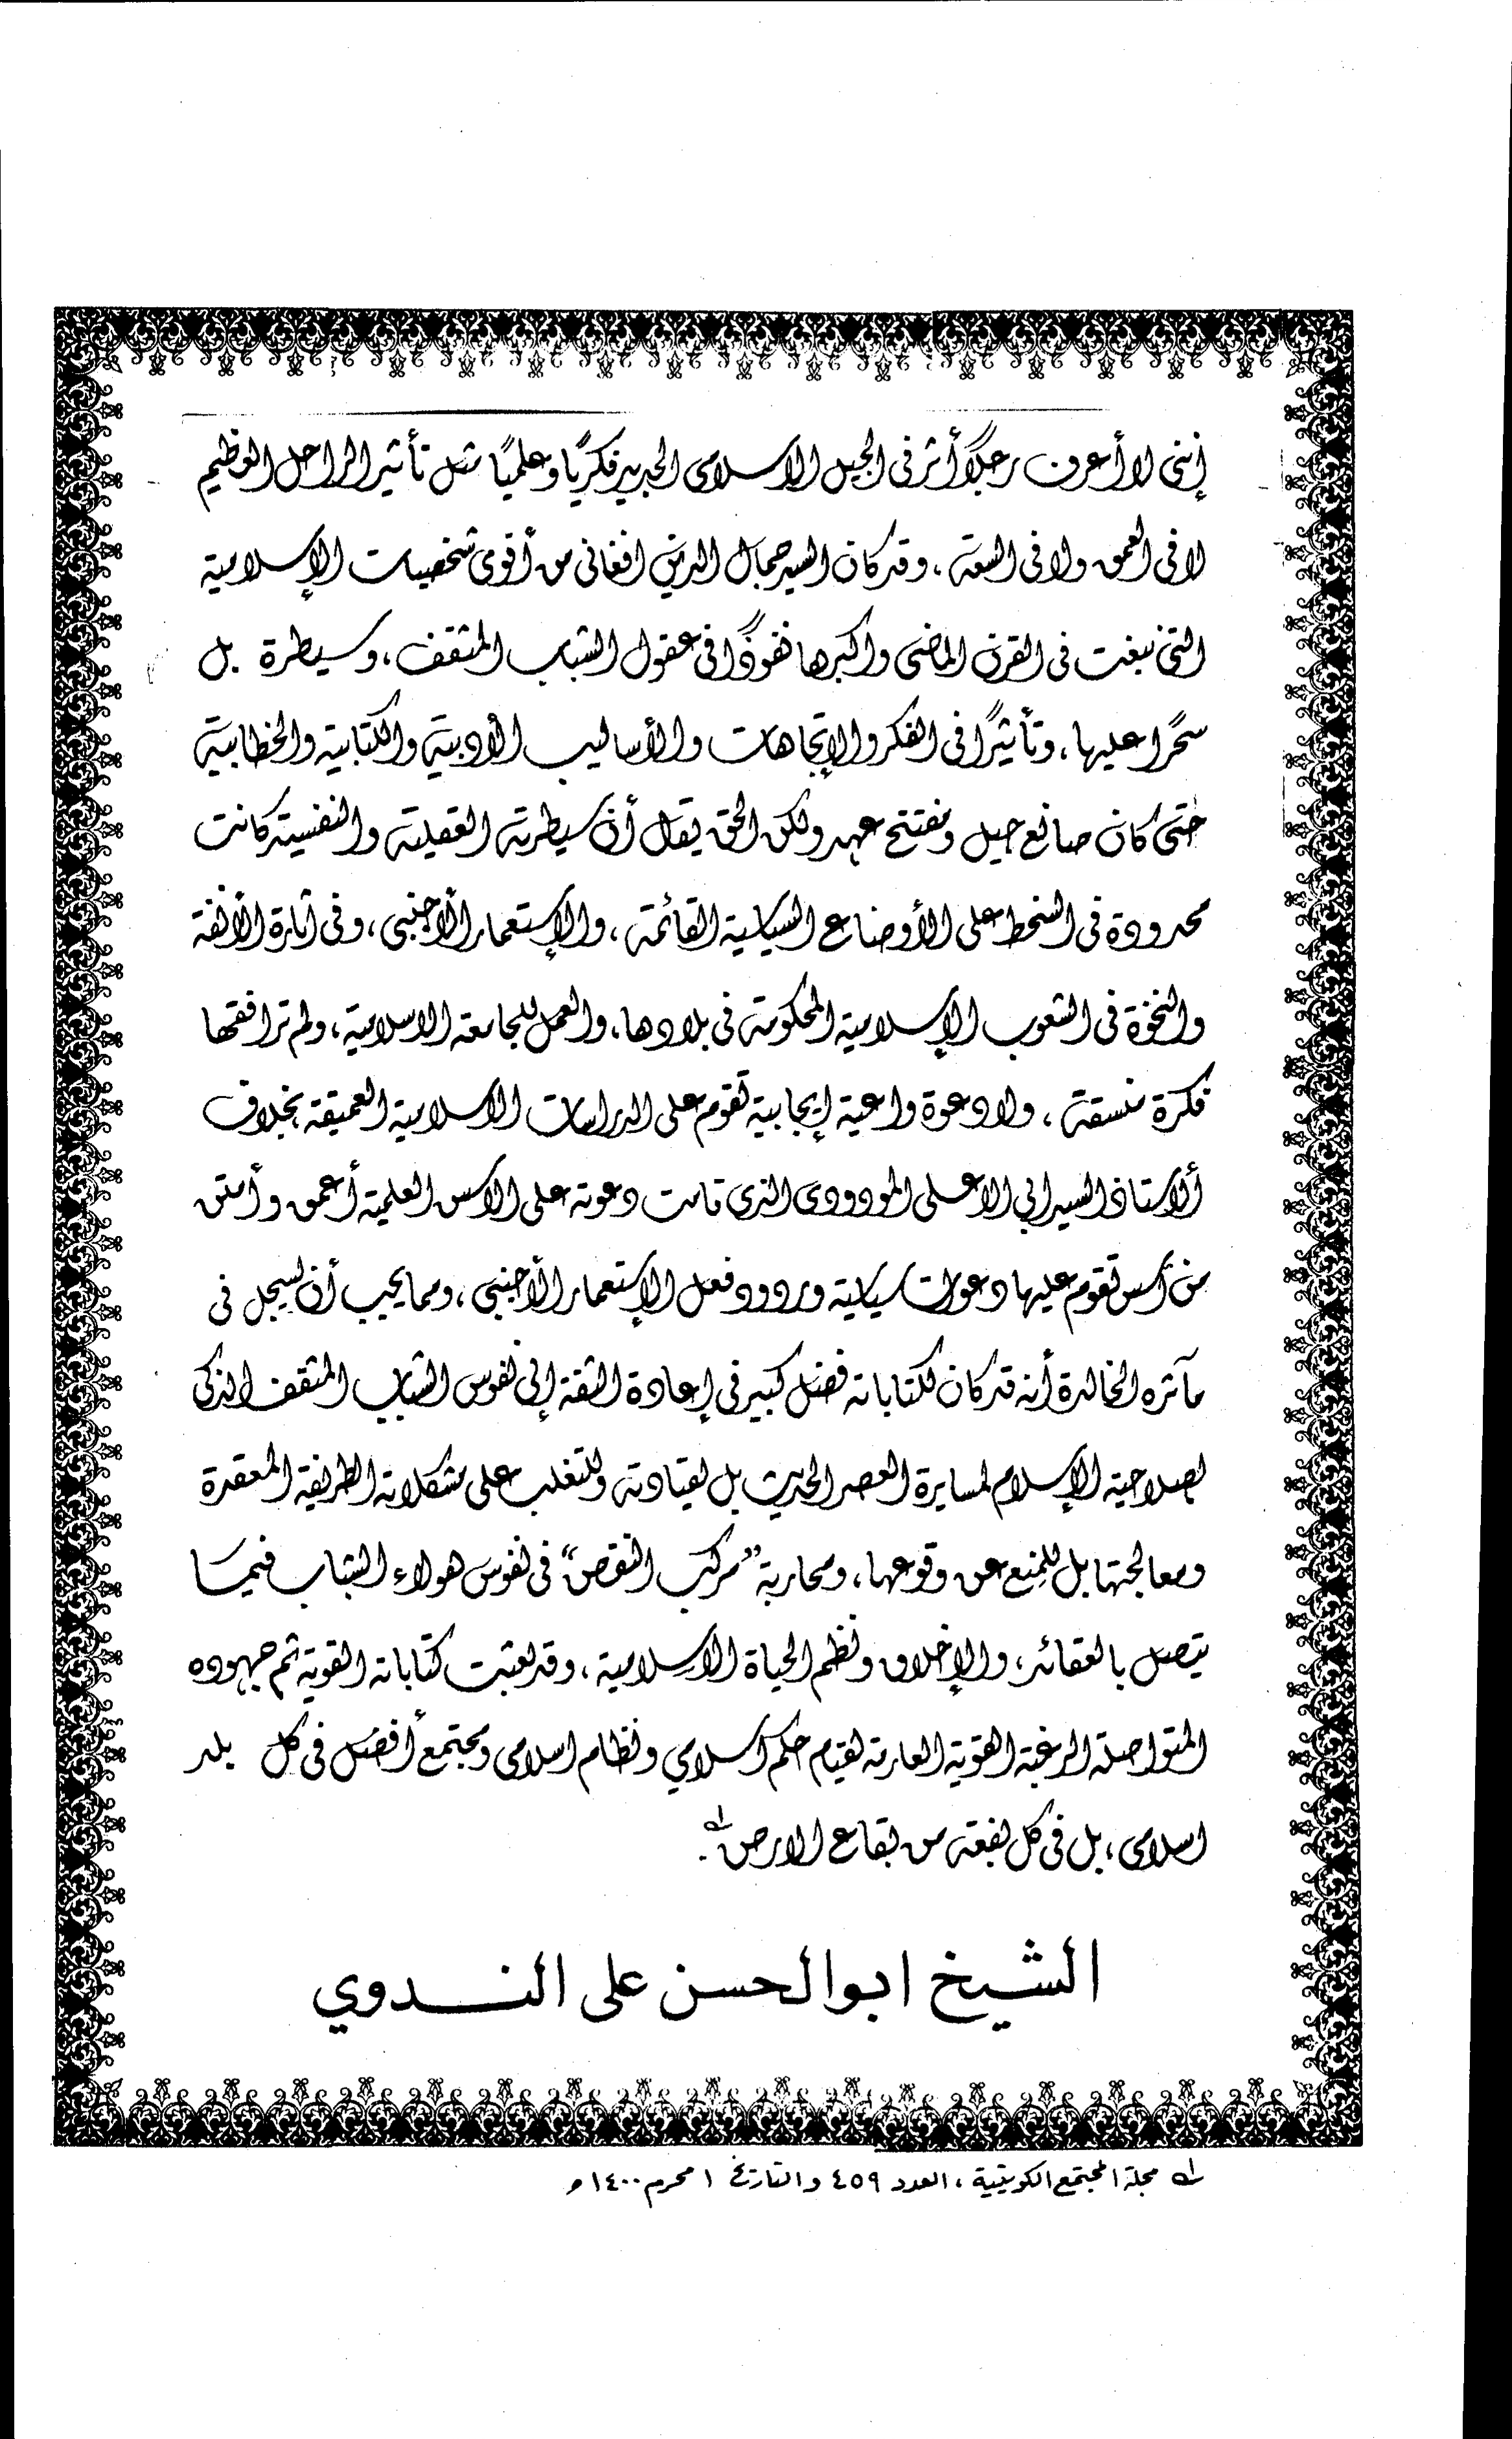 إننى لا أعرف رجلاً أثر فى الجيل الاسلامى الجديد فكريًا وعلميًا مثل تأثير الراحل العظيم
لا فى العمق ولا فى السعة ، وقد كان السيد جمال الدين افغانى من أقوى شخصيات الإسلامية
التى نبغت فى القرن الماضى واكبرها نفوذًا فى عقول الشباب المثقف ، وسيطرة بل
سحرًا عليها ، وتأثيرًا فى الفكر والإتجاهات والأساليب الأدبية والكتابية والخطابية
حتى كان صانع جيل ومفتتح عهد ولكن الحق يقال أن سيطرته العقلية والنفسية كانت
محدودة فى السخط على الأوضاع السياسية القائمة ، والإستعمار الأجنبى ، وفى اثارة الأنفة
والنخوة فى الشعوب الإسلامية المحكومة فى بلادها ، والعمل للجامعة الاسلامية ، ولم ترافقها
فكرة منسقة ، ولا دعوة واعية إيجابية تقوم على الدراسات الاسلامية العميقة بخلاف
ألاستاذ السيد ابي الاعلى المودودى الذى قامت دعوته على الاسس العلمية أعمق وأمتن
من أسس تقوم عليها دعوات سياسية وردود فعل الإستعمار الأجنبى ، ومما يجب أن يسجل فى
مآثره الخالدة أنه قد كان لكتاباته فضل كبير فى إعادة الثقة إلى نفوس الشباب المثقف الذكى
بصلاحية الإسلام لمسايرة العصر الحديث بل لقيادته وللتغلب على مشكلاته الطريفة المعقدة
ومعالجتها بل للمنع عن وقوعها ، ومحاربة "مركب النقص" فى نفوس هولاء الشباب فيما
يتصل بالعقائد ، والإخلاق ونظم الحياة الاسلامية ، وقد بعثت كتاباته القوية ثم جهوده
المتواصلة الرغبة القوية العارمة لقيام حكم اسلامي ونظام اسلامى ومجتمع أفضل فى كل بلد
اسلامى ، بل فى كل بقعة من بقاع الارض ۱ .
الشيخ ابوالحسن على الندوي
۱ مجلة المجتمع الكويتية ، العدد ٤٥٩ والتاريخ ١ محرم ١٤٠٠ ھ